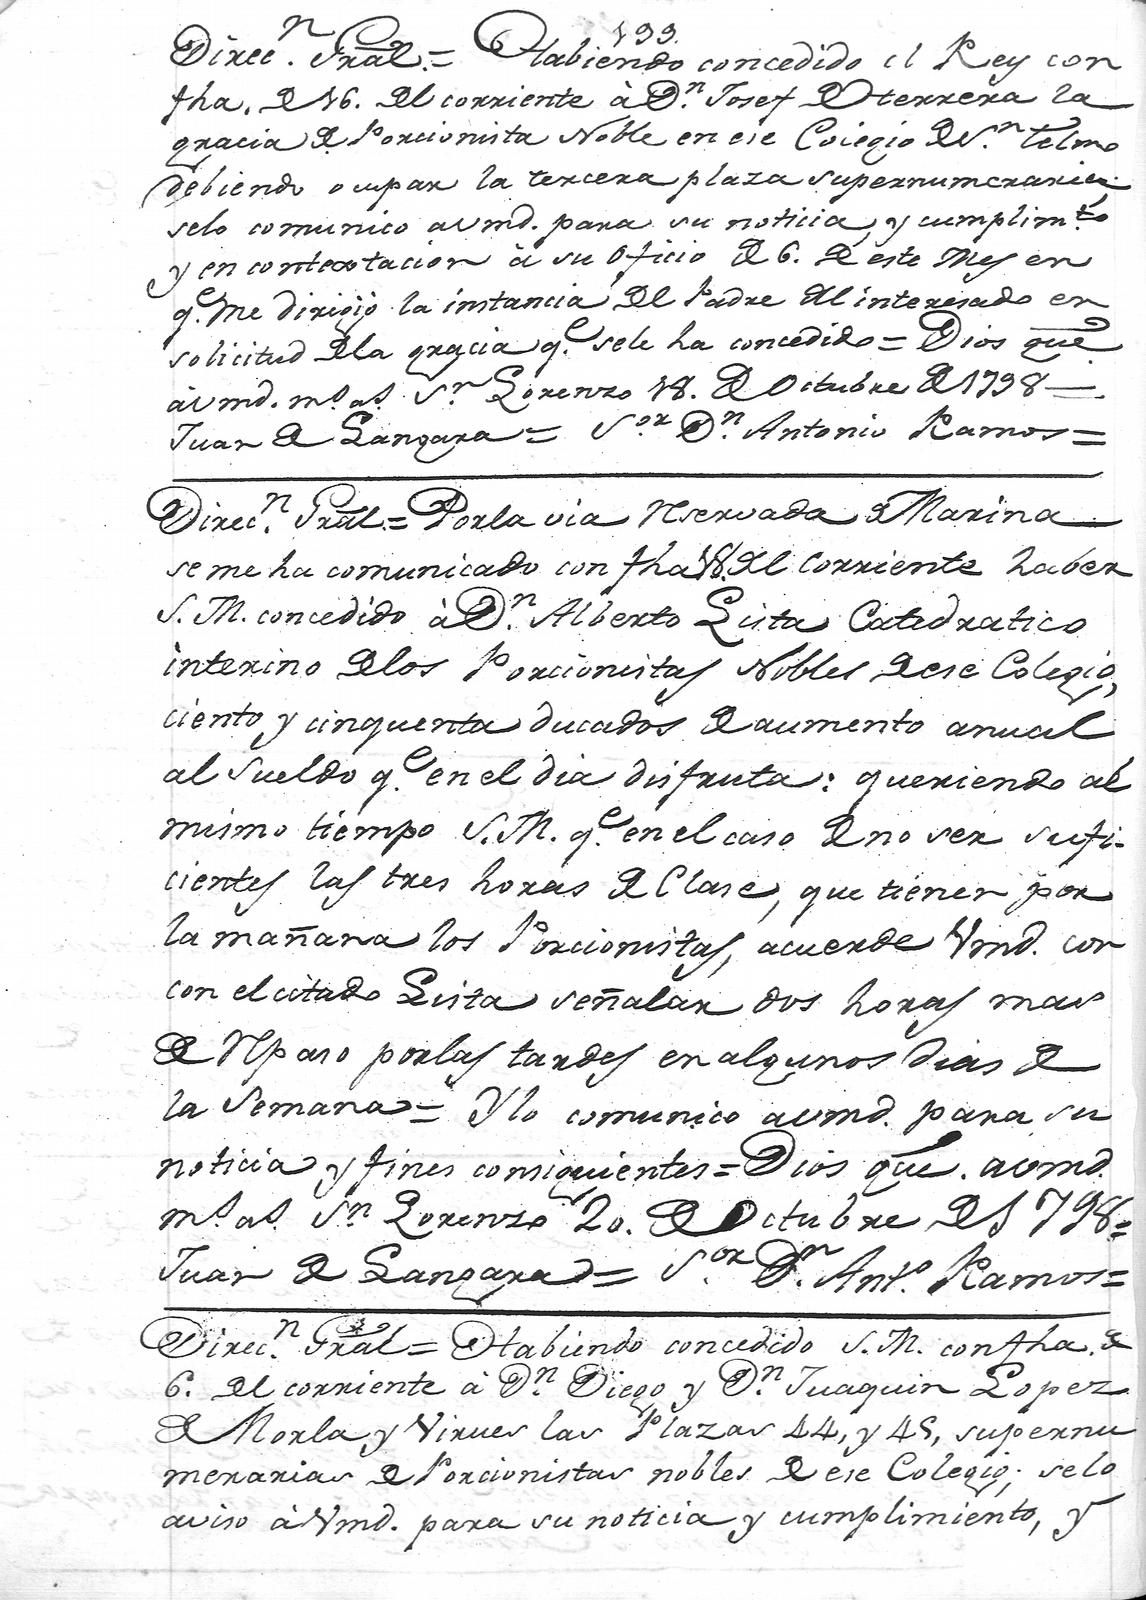 199.
Direc.n Gral.= Habiendo concedido el Rey con
fha. de 16. del corriente à D.n Josef Dterrera la
gracia de Porcionista Noble en ese Colegio de S.n Telmo
debiendo ocupar la tercera plaza supernumeraria
selo comunico avmd. para su noticia, y cumplim.to
y en contextacion à su Oficio de 6. de este Mes en
q.e Me dirigió la instancia del Padre del interesado en
solicitud dela gracia q.e sele ha concedido = Dios gue
àvmd. m.s a.s S.n Lorenzo 18. de Octubre de 1798 —
Juan de Langara = S.or D.n Antonio Ramos =
Direc.n Gral.= Porla via reservada de Marina
se me ha comunicado con fha 18. del Corriente haber
S. M. concedido à D.n Alberto Lista Catedratico
interino delos Porcionistas Nobles de ese Colegio,
ciento y cinquenta ducados de aumento anual
al Sueldo q.e en el dia disfruta: queriendo al
mismo tiempo S. M. q.e en el caso de no ser sufi-
cientes las tres horas de Clase, que tienen por
la mañana los Porcionistas, acuerde Vmd. con
con el citado Lista señalar dos horas mas
de repaso porlas tardes en algunos dias de
la Semana = Y lo comunico avmd. para su
noticia y fines consiguientes = Dios gue. avmd.
m.s a.s S.n Lorenzo 20. de Octubre de 1798 =
Juan de Langara = S.or D.n Ant.o Ramos =
Direc.n Gral = Habiendo concedido S. M. con fha. de
6. del corriente à D.n Diego y D.n Juaquin Lopez
de Morla y Virues las Plazas 44, y 45, supernu
merarias de Porcionistas nobles de ese Colegio; selo
aviso à Vmd. para su noticia y cumplimiento, y